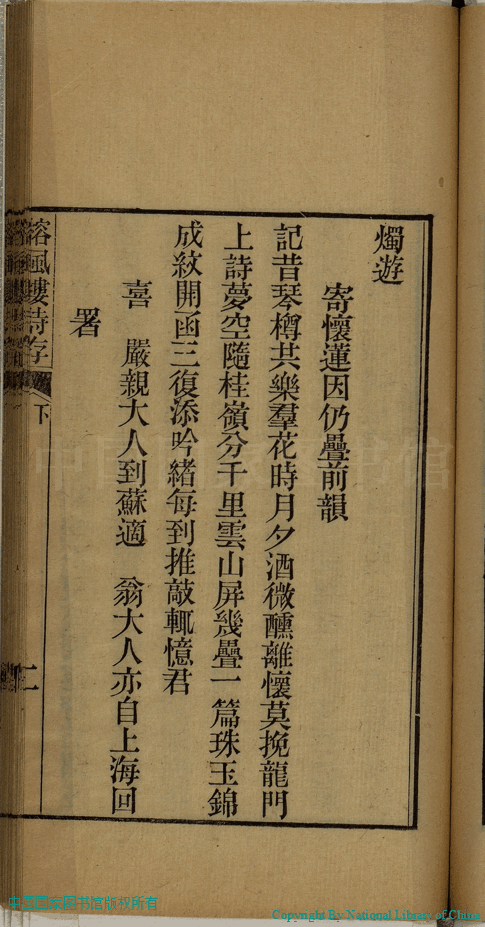 燭遊
寄懷蓮因仍疊前韻
記昔琴樽共樂羣花時月夕酒微醺離懷莫挽龍門
上詩夢空隨桂嶺分千里雲山屏幾疊一篇珠玉錦
成紋開函三復添吟緒每到推敲輒憶君
喜 嚴親大人到蘇適 翁大人亦自上海回
署
楼詩存
下
二
中国国家图书馆版权所有
Copyright By National Library of China